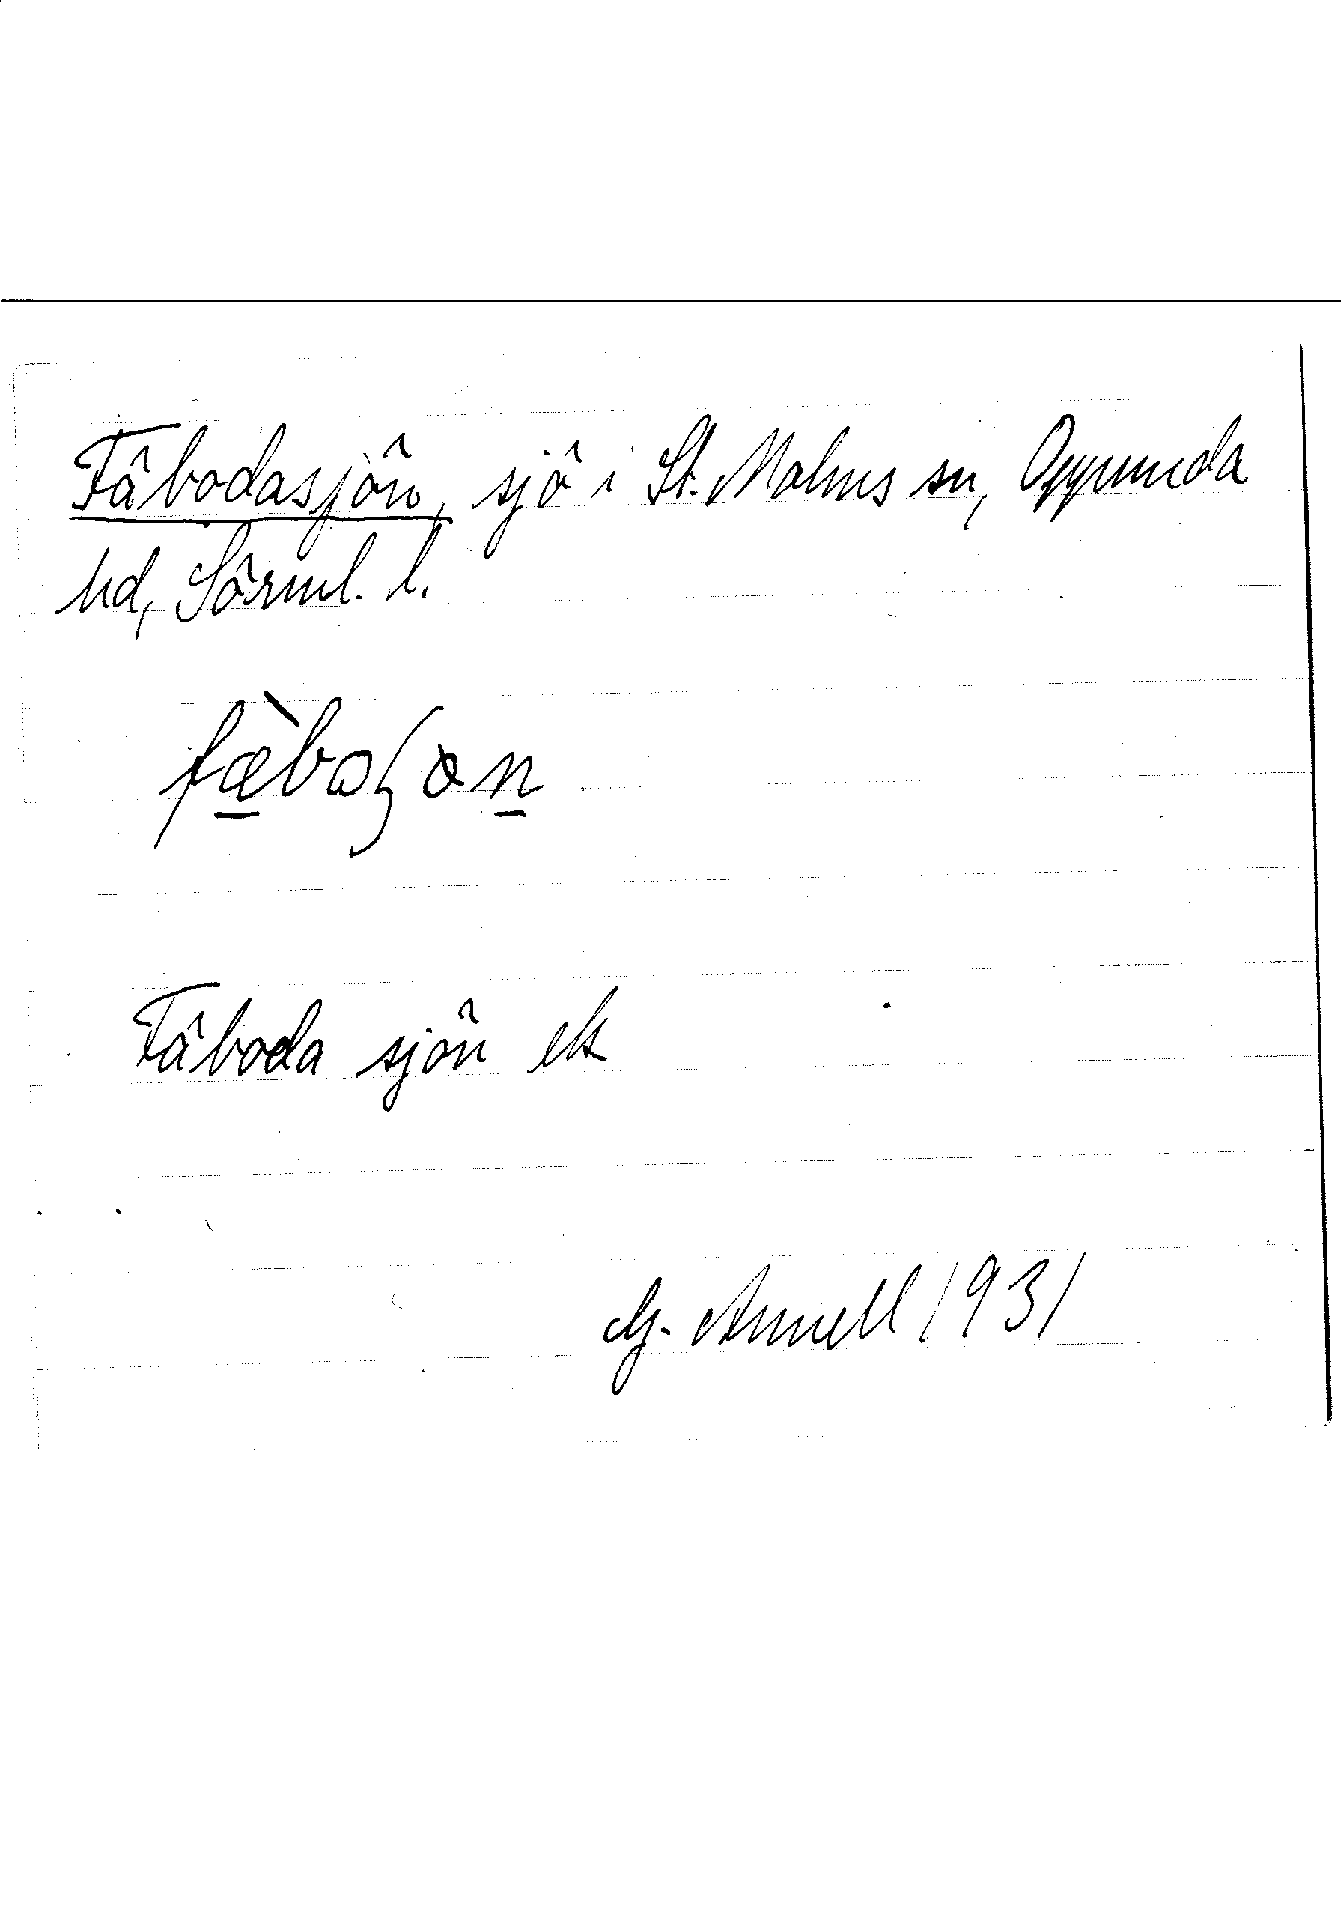 Fäbodasjön, sjö i St. Malms sn, Oppunda
hd, Sörml. l.
fæ̱̀baʃøṉ
Fäboda sjön ek
G. Annell 1931